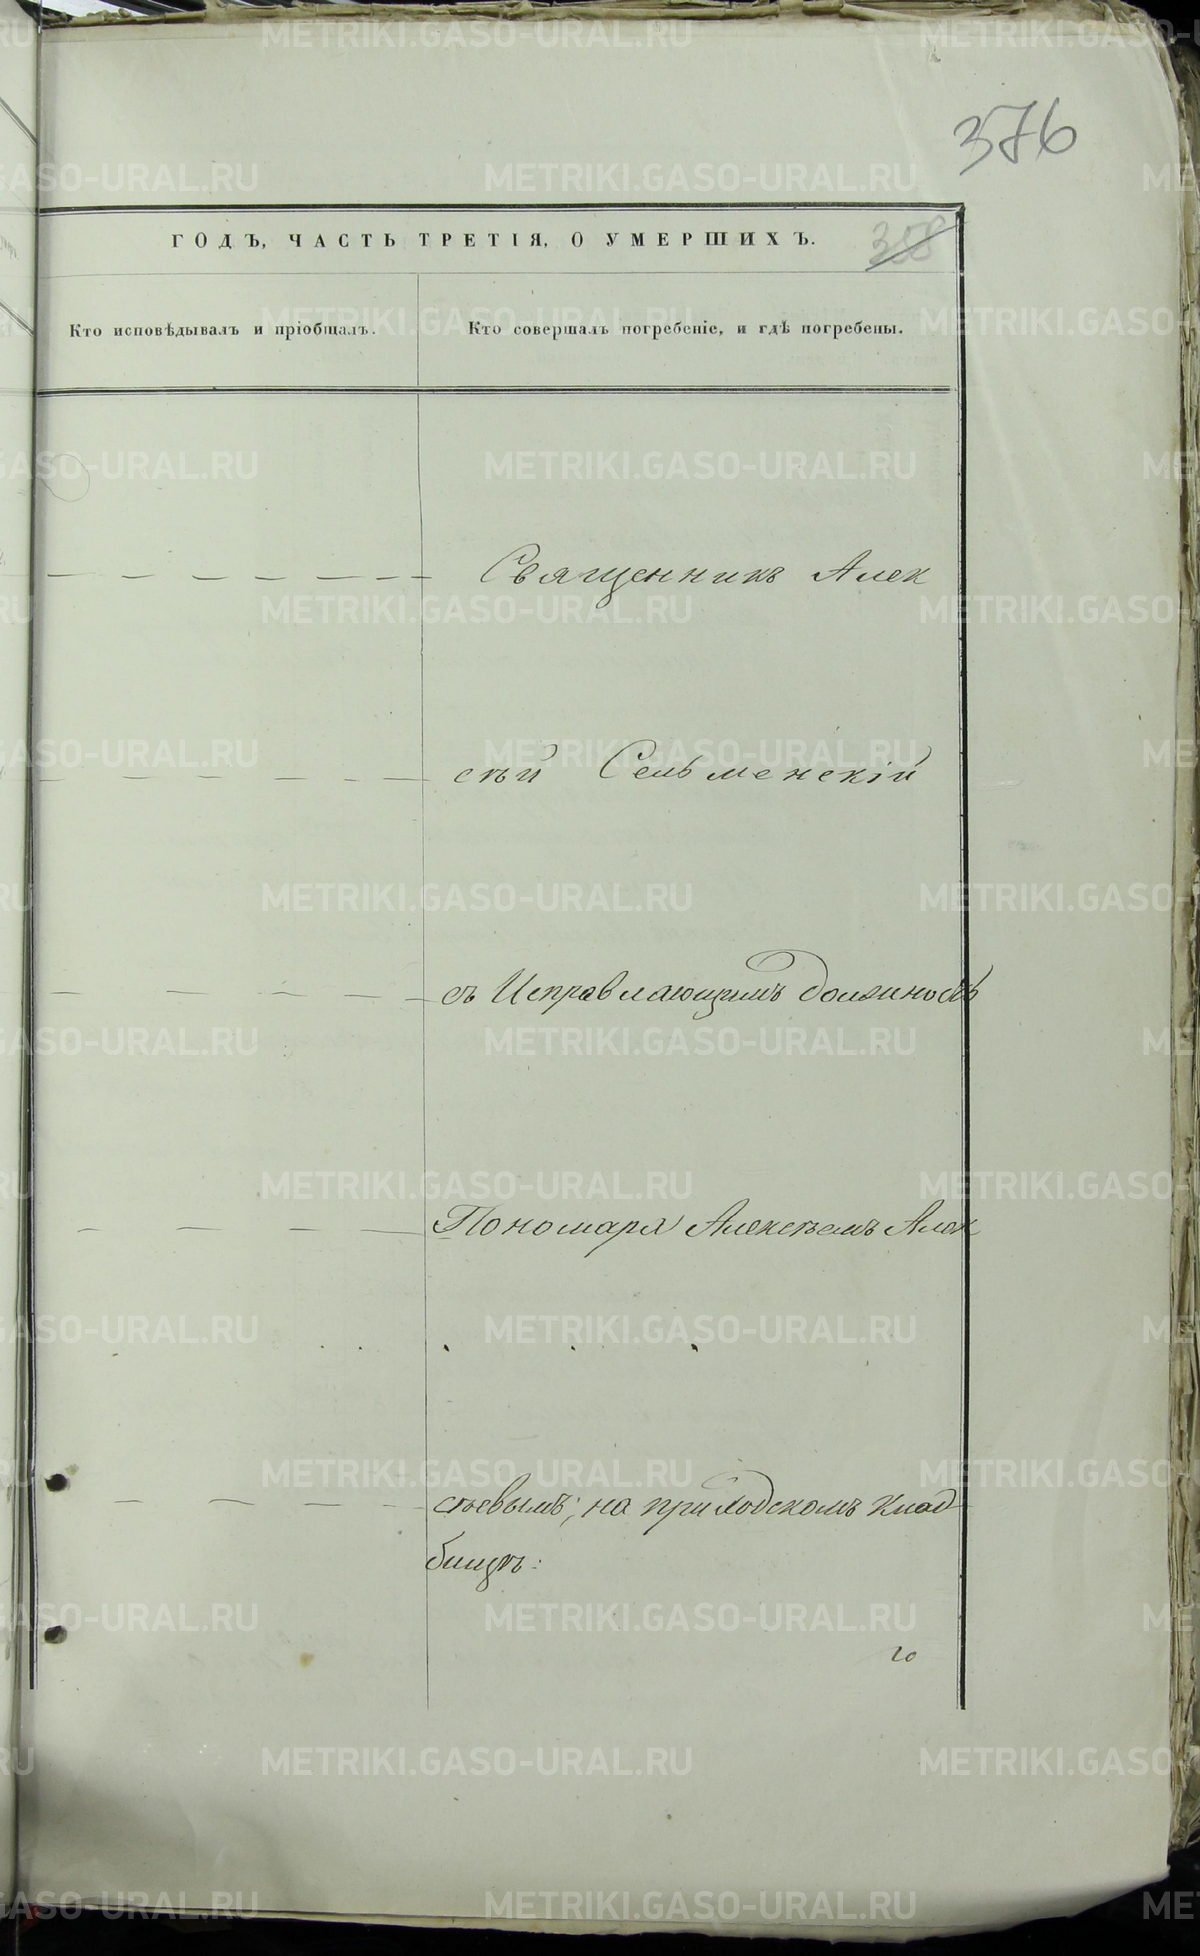 376
ГОДЪ, ЧАСТЬ ТРЕТІЯ, О УМЕРШИХЪ.
358
Кто исповѣдывалъ и пріобщалъ.
Кто совершалъ погребеніе, и гдѣ погребены.
Священникъ Алек
сѣй Сельменскій
съ Исправляющимъ должность
Пономаря Алексѣемъ Алек
сѣевымъ; на приходскомъ клад
бищѣ:
METRIKI.GASO-URAL.RU